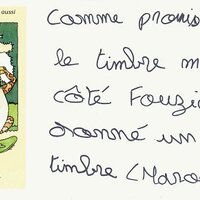 aussi
Comme promis
le timbre m
côté Fouzi
donné un
timbre (Maro